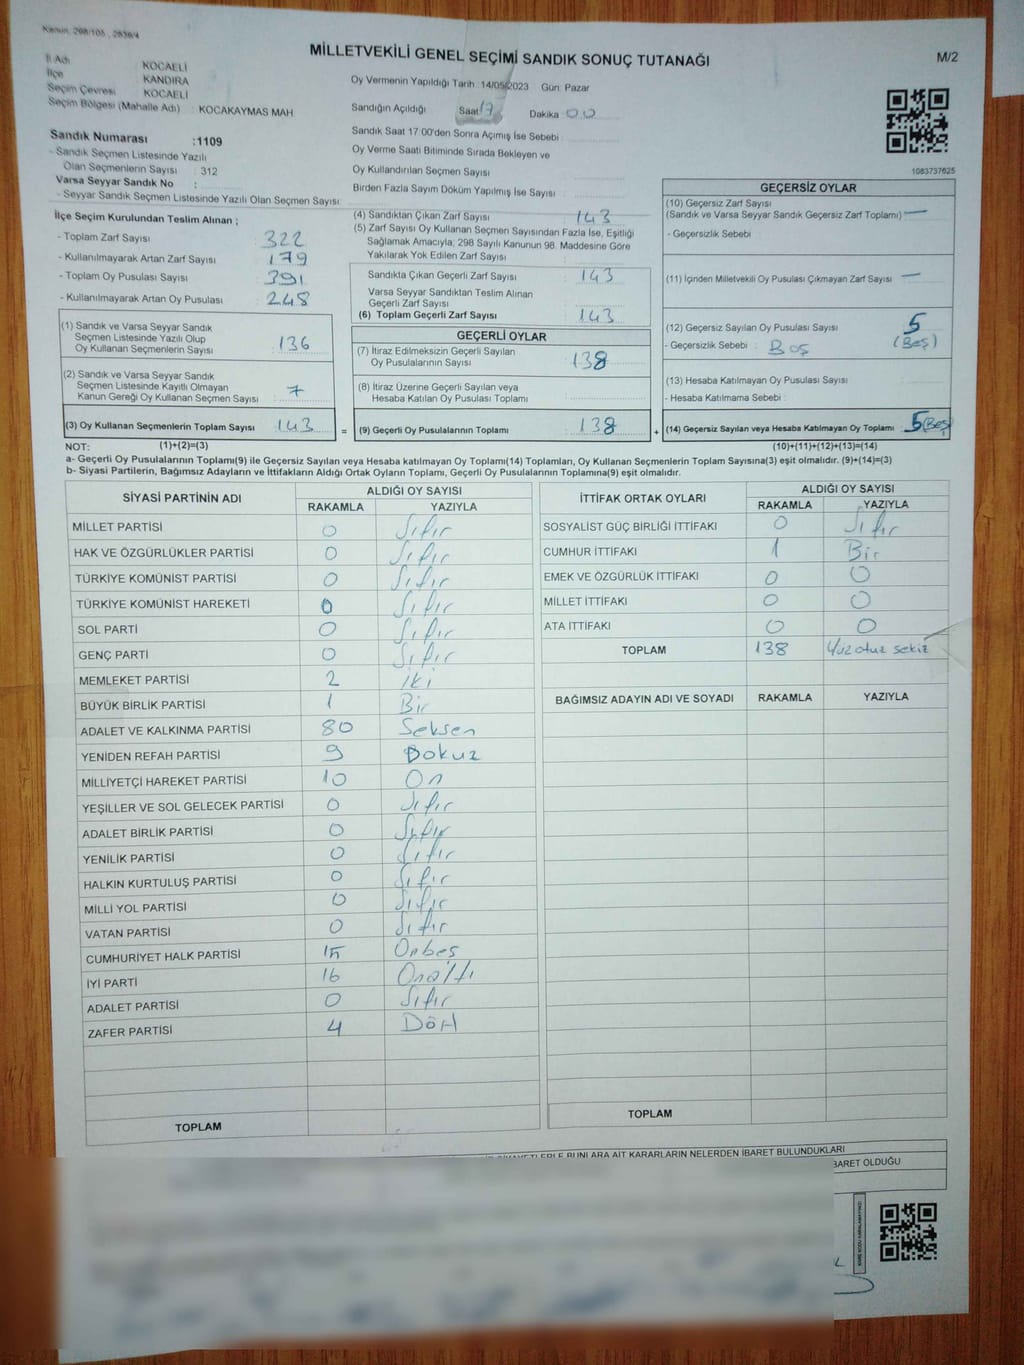 Kanun: 298/105 , 2839/4
MİLLETVEKİLİ GENEL SEÇİMİ SANDIK SONUÇ TUTANAĞI
M/2
İl Adı KOCAELİ
İlçe KANDIRA
Seçim Çevresi KOCAELİ
Seçim Bölgesi (Mahalle Adı) : KOCAKAYMAS MAH
Sandık Numarası :1109
- Sandık Seçmen Listesinde Yazılı
Olan Seçmenlerin Sayısı : 312
Varsa Seyyar Sandık No :
- Seyyar Sandık Seçmen Listesinde Yazılı Olan Seçmen Sayısı:
Oy Vermenin Yapıldığı Tarih :14/05/2023 Gün: Pazar
Sandığın Açıldığı Saat 17 Dakika 00
Sandık Saat 17:00'den Sonra Açımış İse Sebebi
Oy Verme Saati Bitiminde Sırada Bekleyen ve
Oy Kullandırılan Seçmen Sayısı
Birden Fazla Sayım Döküm Yapılmış İse Sayısı
1083737625
İlçe Seçim Kurulundan Teslim Alınan ;
- Toplam Zarf Sayısı : 322
- Kullanılmayarak Artan Zarf Sayısı : 179
- Toplam Oy Pusulası Sayısı : 391
- Kullanılmayarak Artan Oy Pusulası : 248
(1) Sandık ve Varsa Seyyar Sandık
Seçmen Listesinde Yazılı Olup
Oy Kullanan Seçmenlerin Sayısı : 136
(2) Sandık ve Varsa Seyyar Sandık
Seçmen Listesinde Kayıtlı Olmayan
Kanun Gereği Oy Kullanan Seçmen Sayısı : 7
(3) Oy Kullanan Seçmenlerin Toplam Sayısı : 143 =
(4) Sandıktan Çıkan Zarf Sayısı 143
(5) Zarf Sayısı Oy Kullanan Seçmen Sayısından Fazla İse, Eşitliği
Sağlamak Amacıyla; 298 Sayılı Kanunun 98. Maddesine Göre
Yakılarak Yok Edilen Zarf Sayısı :
Sandıkta Çıkan Geçerli Zarf Sayısı : 143
Varsa Seyyar Sandıktan Teslim Alınan
Geçerli Zarf Sayısı
(6) Toplam Geçerli Zarf Sayısı : 143
GEÇERLİ OYLAR
(7) İtiraz Edilmeksizin Geçerli Sayılan
Oy Pusulalarının Sayısı : 138
(8) İtiraz Üzerine Geçerli Sayılan veya
Hesaba Katılan Oy Pusulası Toplamı :
(9) Geçerli Oy Pusulalarının Toplamı : 138 +
GEÇERSİZ OYLAR
(10) Geçersiz Zarf Sayısı
(Sandık ve Varsa Seyyar Sandık Geçersiz Zarf Toplamı) —
- Geçersizlik Sebebi
(11) İçinden Milletvekili Oy Pusulası Çıkmayan Zarf Sayısı —
(12) Geçersiz Sayılan Oy Pusulası Sayısı : 5
- Geçersizlik Sebebi : Boş (Beş)
(13) Hesaba Katılmayan Oy Pusulası Sayısı :
- Hesaba Katılmama Sebebi :
(14) Geçersiz Sayılan veya Hesaba Katılmayan Oy Toplamı : 5 (Beş)
NOT: (1)+(2)=(3) (10)+(11)+(12)+(13)=(14)
a- Geçerli Oy Pusulalarının Toplamı(9) ile Geçersiz Sayılan veya Hesaba katılmayan Oy Toplamı(14) Toplamları, Oy Kullanan Seçmenlerin Toplam Sayısına(3) eşit olmalıdır. (9)+(14)=(3)
b- Siyasi Partilerin, Bağımsız Adayların ve İttifakların Aldığı Ortak Oyların Toplamı, Geçerli Oy Pusulalarının Toplamına(9) eşit olmalıdır.
SİYASİ PARTİNİN ADI ALDIĞI OY SAYISI
RAKAMLA YAZIYLA
MİLLET PARTİSİ 0 Sıfır
HAK VE ÖZGÜRLÜKLER PARTİSİ 0 Sıfır
TÜRKİYE KOMÜNİST PARTİSİ 0 Sıfır
TÜRKİYE KOMÜNİST HAREKETİ 0 Sıfır
SOL PARTİ 0 Sıfır
GENÇ PARTİ 0 Sıfır
MEMLEKET PARTİSİ 2 iki
BÜYÜK BİRLİK PARTİSİ 1 Bir
ADALET VE KALKINMA PARTİSİ 80 Seksen
YENİDEN REFAH PARTİSİ 9 Dokuz
MİLLİYETÇİ HAREKET PARTİSİ 10 On
YEŞİLLER VE SOL GELECEK PARTİSİ 0 Sıfır
ADALET BİRLİK PARTİSİ 0 Sıfır
YENİLİK PARTİSİ 0 Sıfır
HALKIN KURTULUŞ PARTİSİ 0 Sıfır
MİLLİ YOL PARTİSİ 0 Sıfır
VATAN PARTİSİ 0 Sıfır
CUMHURİYET HALK PARTİSİ 15 Onbeş
İYİ PARTİ 16 Onaltı
ADALET PARTİSİ 0 Sıfır
ZAFER PARTİSİ 4 Dört
TOPLAM
İTTİFAK ORTAK OYLARI ALDIĞI OY SAYISI
RAKAMLA YAZIYLA
SOSYALİST GÜÇ BİRLİĞİ İTTİFAKI 0 Sıfır
CUMHUR İTTİFAKI 1 Bir
EMEK VE ÖZGÜRLÜK İTTİFAKI 0 0
MİLLET İTTİFAKI 0 0
ATA İTTİFAKI 0 0
TOPLAM 138 Yüz otuz sekiz
BAĞIMSIZ ADAYIN ADI VE SOYADI RAKAMLA YAZIYLA
TOPLAM
BUNLARA AİT KARARLARIN NELERDEN İBARET BULUNDUKLARI
BARET OLDUĞU